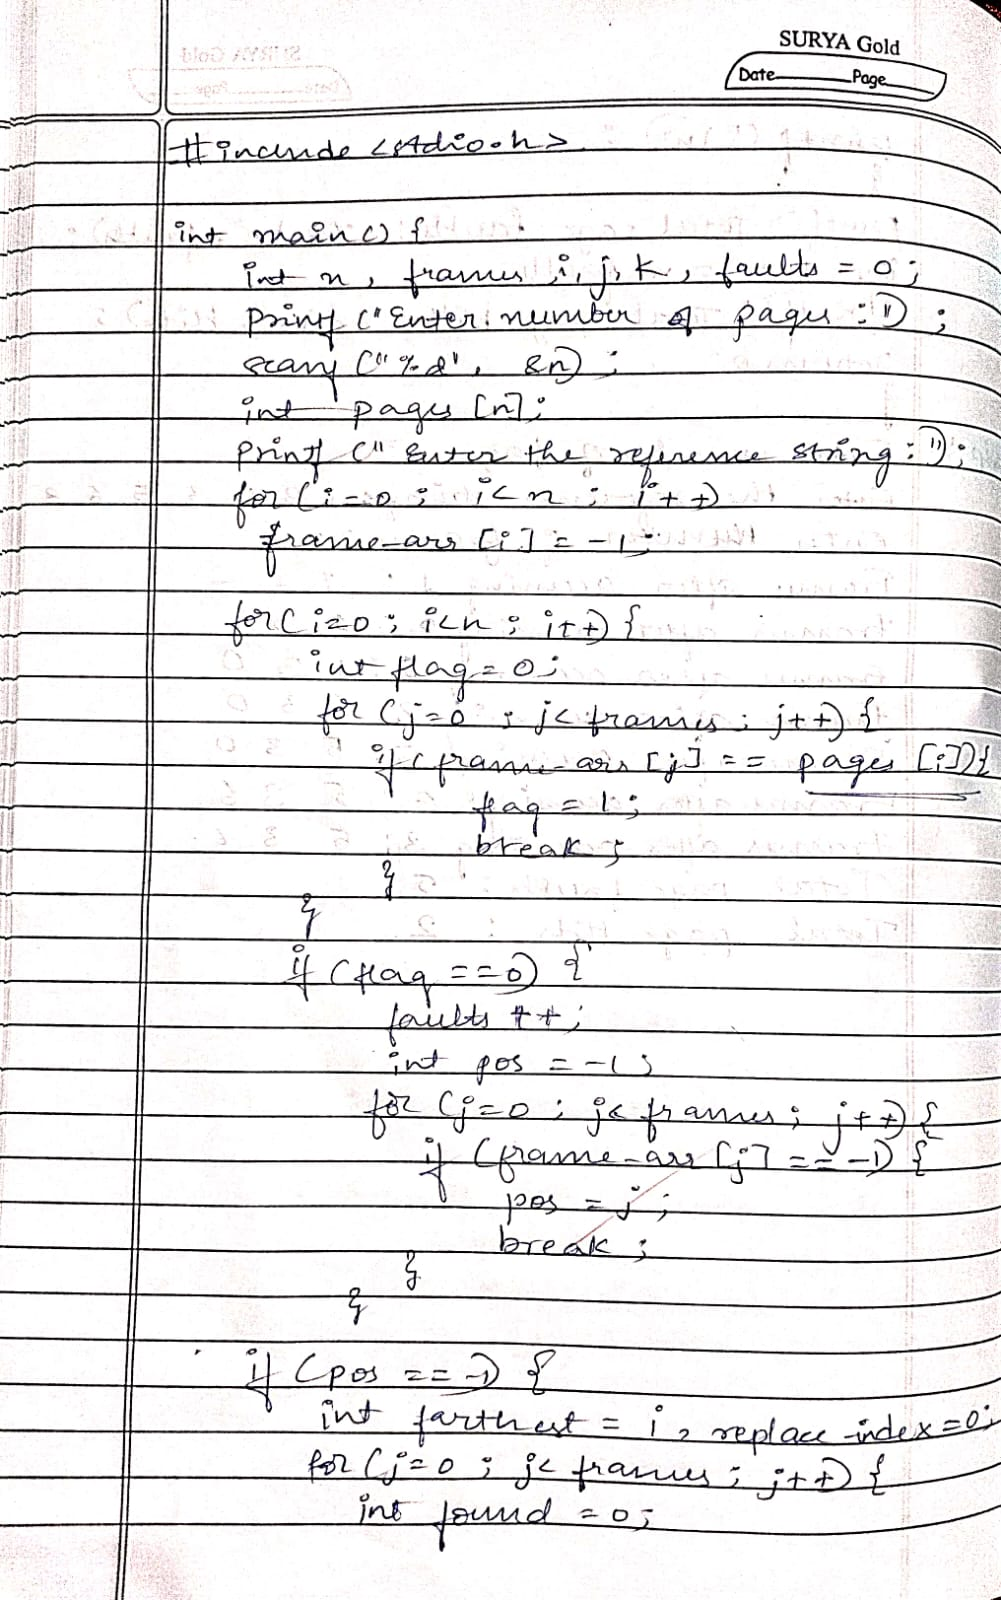 SURYA Gold
Date Page
#include <stdio.h>
int main() {
int n, frames, i, j, k, faults = 0;
printf ("Enter number of pages :");
scanf ("%d", &n);
int pages [n];
printf (" Enter the reference string :");
for (i=0 ; i<n ; i++)
frame_arr [i] = -1;
for(i=0 ; i<n ; i++) {
int flag = 0;
for (j=0 ; j< frames ; j++) {
if (frame_arr [j] == pages [i]){
flag = 1;
break ;
}
}
if (flag ==0) {
faults ++;
int pos = -1;
for (j=0 ; j< frames ; j++) {
if (frame_arr [j] == -1) {
pos = j ;
break ;
}
}
if (pos == -1) {
int farthest = i, replace_index=0;
for (j=0 ; j< frames ; j++) {
int found = 0;